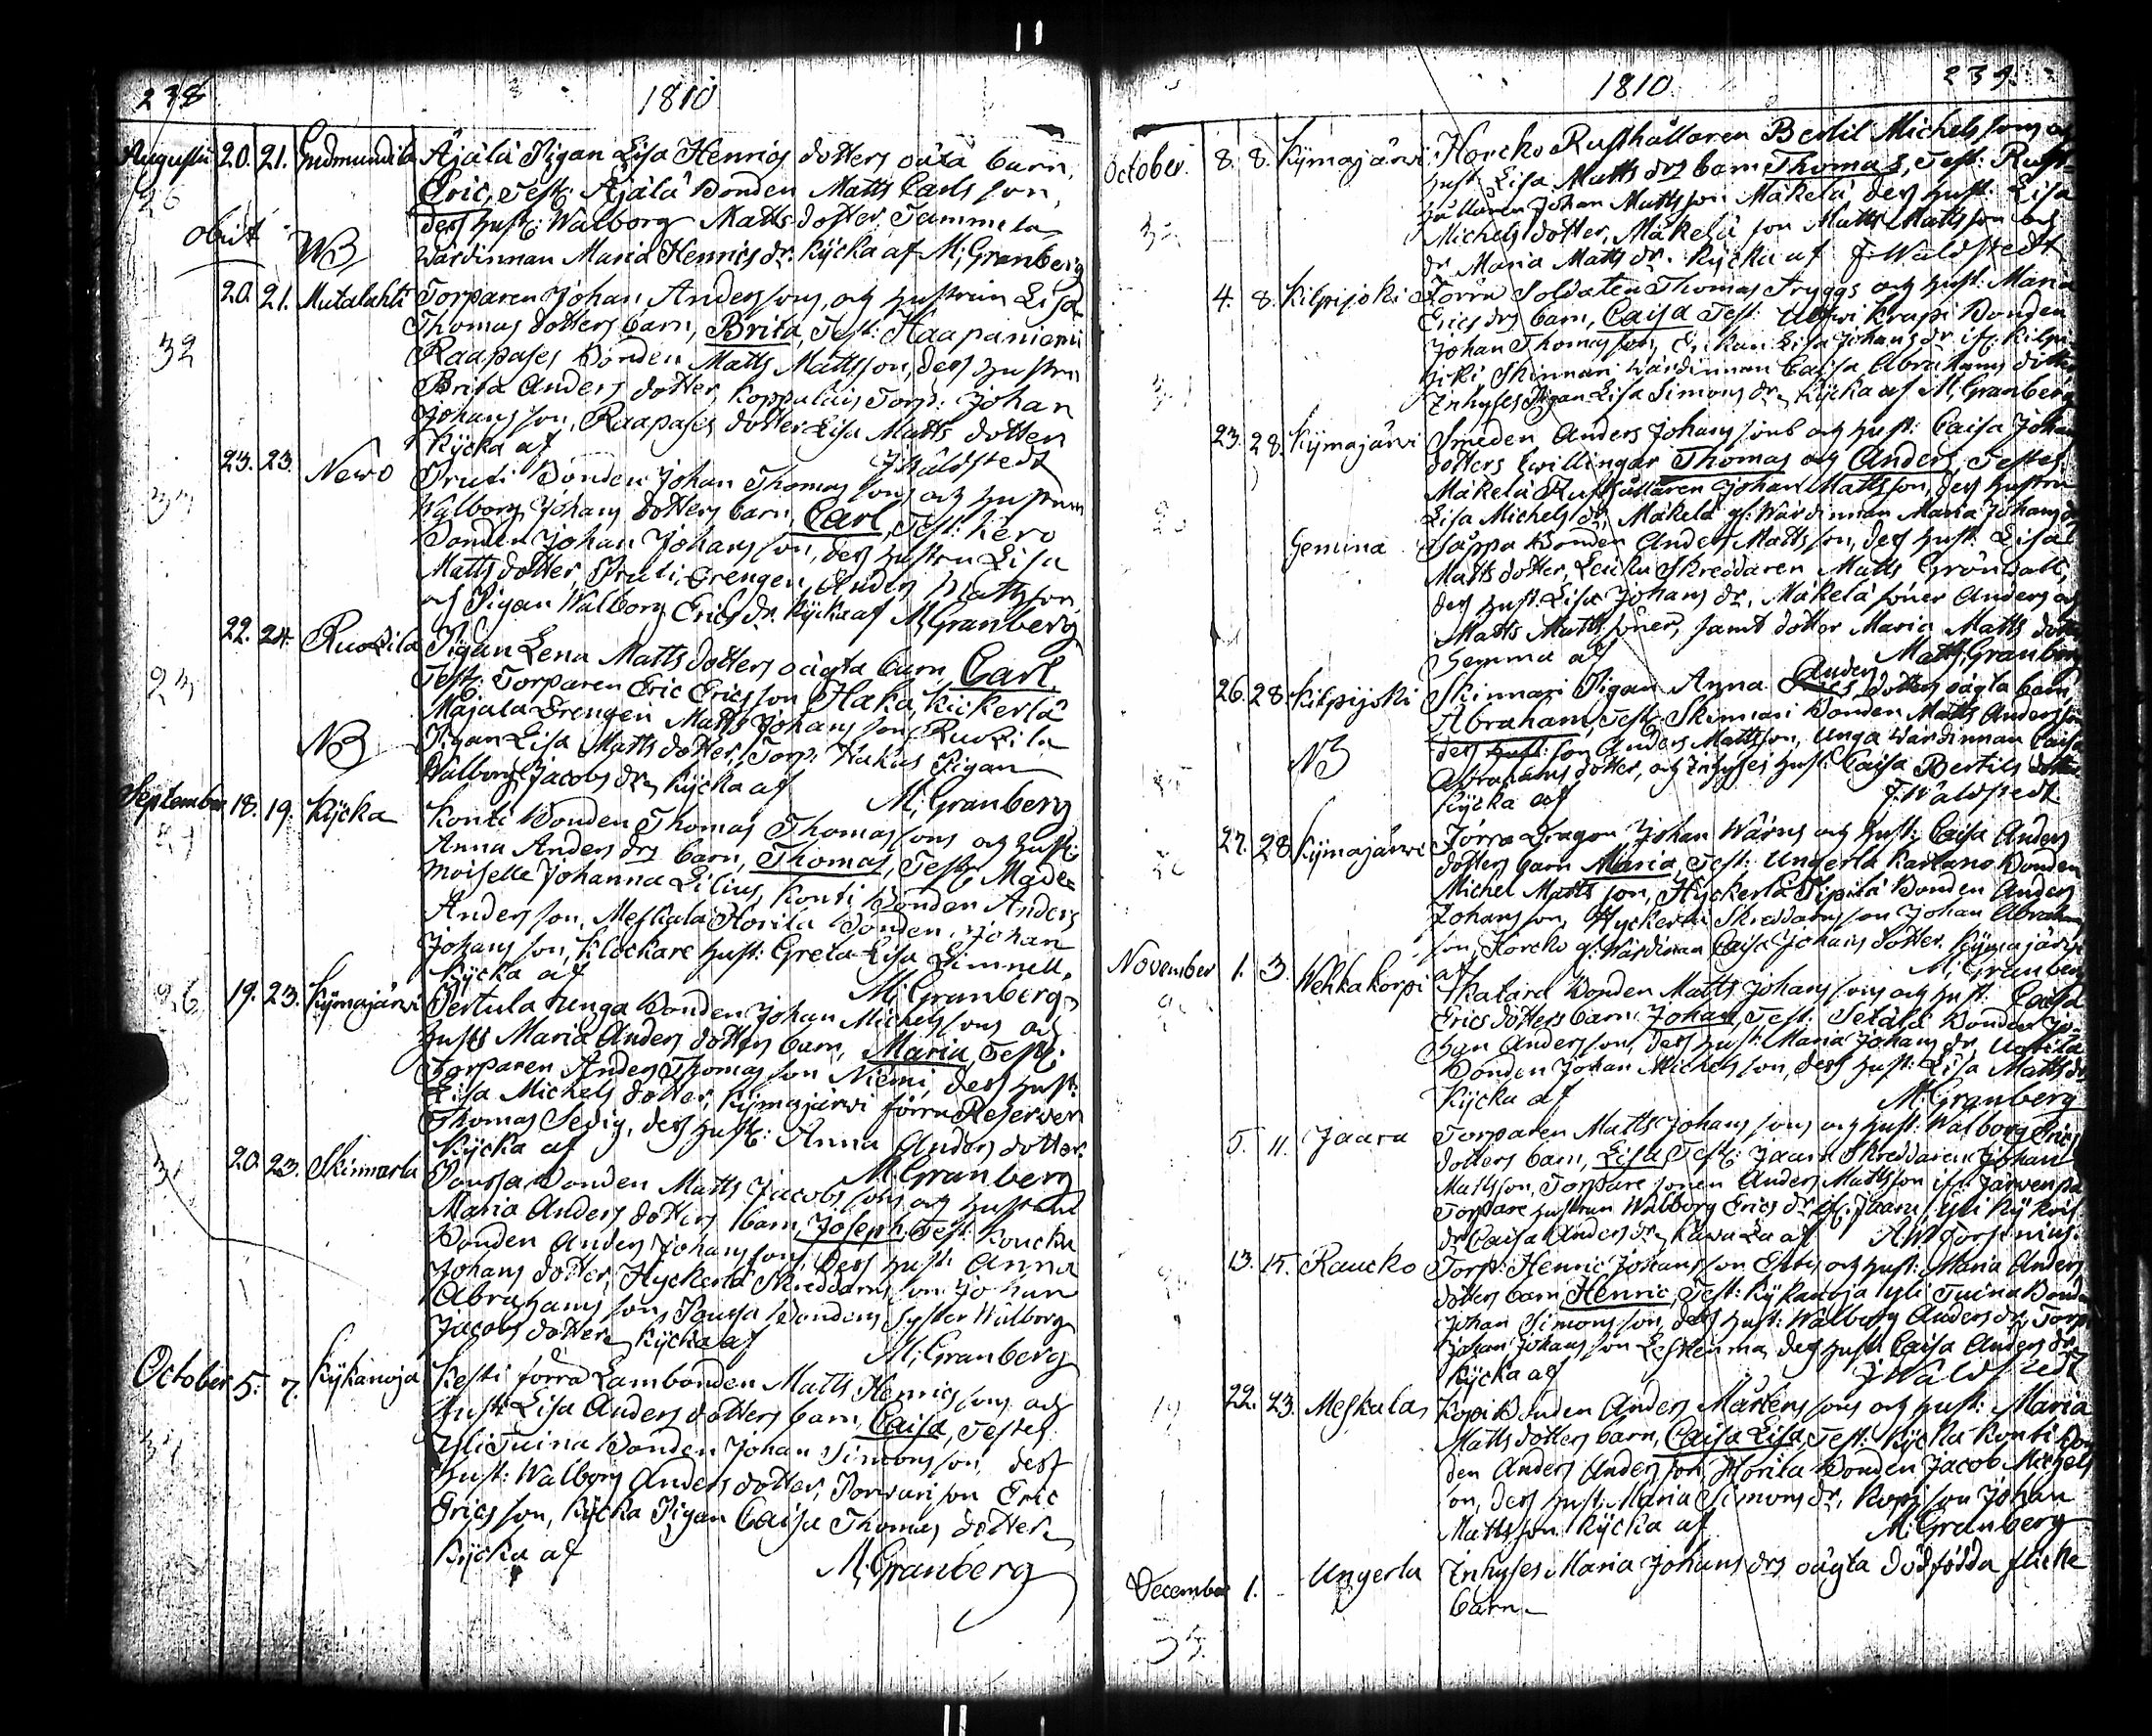 238 1810
Augusti 20. 21. Gudmundila Äjälä Pigan Lisa Henrics dotters oäkta barn,
26 Eric, Test: Äjälä Bonden Matts Carls son,
dess hust: Walborg Matts dotter Tammela
obiit NB Wärdinnan Maria Henrics dr. Kycka af M: Granberg
20. 21. Mutalahti Torparen Johan Anderssons, och hustrun Lisa
Thomas dotters barn, Brita, Test: Haapaniemi
32 Raapases Bonden Matts Mattsson, dess hustru
Brita Anders dotter, Koppulais Torp: Johan
Johansson, Raapases dotter Lisa Matts dotter
Kycka af J Waldstedt
23. 23. Nero Pruti Bonden Johan Thomas sons och hustrun
Walborg Johans dotters barn, Carl, Test: Kero
Bonden Johan Johans son, dess hustru Lisa
Matts dotter, Pruti Drengen, Anders Mattsson,
och Pigan Walborg Erics dr. Kycka af M. Granberg
22. 24. Ruokila Pigan Lena Matts dotters oägta barn, Carl,
23 Test: Torparen Eric Ericsson Haka, Kickerlä
Majala Drengen Matts Johans son, Ruokila
NB Pigan Lisa Matts dotter, Torp: Hakas Pigan
Walborg Jacobs dr, Kycka af M: Granberg
September 18. 19. Kycka Konti Bonden Thomas Thomas sons och hust:
Anna Anders drs barn, Thomas, Test: Made-
moiselle Johanna Lilius, Konti Bonden Anders
Anders son, Meskala Horila Bonden Johan
Johans son, Klockare hust: Greta Lisa Limnell,
Kycka af M: Granberg
26 19. 23. Kymajärvi Pertula unga Bonden Johan Michels sons och
hust: Maria Anders dotters barn, Maria, Test:
Torparen Anders Thomas son Niemi, dess hust:
Lisa Michels dotter, Kymajärwi förra Reserven
Thomas Sedig, dess hust: Anna Anders dotter
Kycka af M. Granberg
20. 23. Skinnarla Poussa Bonden Matts Jacobs sons och hustrus
Maria Anders dotters barn, Joseph, Test: Koucku
Bonden Anders Johans son, dess hust: Anna
Johans dotter, Hyckerlä Skreddarns son Johan
Abrahams son, Poussa Bondens Syster Walborg
Jacobs dotter, Kycka af M: Granberg
October 5. 7. Kykänoja Kesti förra Lambonden Matts Henrics sons och
hust: Lisa Anders dotters barn, Caisa, Testes
Yli Tuina Bonden Johan Simons son, dess
hust: Walborg Anders dotter, Torvari son Eric
Erics son, Kycka Pigan Caisa Thomas dotter
Kycka af M: Granberg
1810 239
October 8. 8. Kymajärvi Horcko Rusthållaren Bertil Michels sons och
hust: Lisa Matts drs barn Thomas, Test: Rust-
hållaren Johan Mattsson Mäkelä, dess hust: Lisa
Michels dotter, Mäkelä son Matts Mattsson och
dr Maria Matts dr. Kycka af J. Waldstedt
4. 8. Kilpijoki Förra Soldaten Thomas Tryggs och hust: Maria
Erics drs barn, Caisa Test: Krapi Bonden
Johan Thomas son, Lisa Johans dr ifr: Kilpi-
joki Skinnari Wärdinnan Caisa Abrahams dotter
Inhyses Pigan Lisa Simons dr, Kycka af M. Granberg
23. 28. Kymajärvi Smeden Anders Johans sons och hust: Caisa Johans
dotters twillingar Thomas och Anders, Testes,
Mäkelä Rusthållaren Johan Mattsson, dess hustru
Lisa Michels dr, Mäkelä g: Wärdinnan Maria Johans dr
Gemina Bonden Anders Mattsson, dess hust: Lisa
Matts dotter, Skreddaren Matts Grönwall,
dess hust: Lisa Johans dr, Mäkelä söner Anders och
Matts Matts söner, samt dotter Maria Matts dotter
Gemma af Matts Granberg
26. 28. Kilpijoki Skinnari Pigan Anna Anders dotters oägta barn
Abraham, Test: Skinnari Bonden Matts Andersson
NB dess hust: son Anders Mattsson, Unga Wärdinnan Caisa
Abrahams dotter, och Inhyses hust: Caisa Bertils dotter
Kycka af J. Waldstedt
27. 28. Kymajärwi Förra Dragon Johan Wärns och hust: Caisa Anders
dotters barn Maria, Test: Ungerla Kartano Bonden
Michel Matts son, Hyckerlä Pipilä Bonden Anders
Johans son, Hyckerlä Skreddarns son Johan Abrahams
son, Horcko g: Wärdinnan Caisa Johans dotter. Kymajärvi
af M: Granberg
November 1. 3. Wehkakorpi Hatara Bonden Matts Johans sons och hust: Caisa
Erics dotters barn, Johan, Test: Setälä Bonden Jo-
han Anders son, dess hust: Maria Johans dr, Uotila
Bonden Johan Michels son, dess hust: Lisa Matts dr
Kycka af M: Granberg
5. 11. Jaara Torparen Matts Johans sons och hust: Walborg Erics
dotters barn, Lisa, Test: Jaara Skreddaren Johan
Mattsson, Torpare sonen Anders Mattsson ifr: Järvenpä
Torpare hustrun Walborg Erics dr if: Jaara,
dr Caisa Anders dr, af A W Forsenius.
13. 15. Raucko Torp: Henric Johans son och hust: Maria Anders
dotters barn Henric, Test: Kykänoja Yli Tuina Bonden
Johan Simons son, dess hust: Walborg Anders dr, Torp:
Johan Johans son Leskenma, dess hust: Caisa Anders dr
Kycka af J Waldstedt
22. 23. Meskala Kopi Bonden Anders Mårtens sons och hust: Maria
Matts dotters barn, Caisa Lisa, Test: Kycka Konti Bon-
den Anders Anders son, Horila Bonden Jacob Michels
son, dess hust: Maria Simons dr, Kopi son Johan
Mattsson Kycka af M: Granberg
December 1. Ungerla Inhyses Maria Johans drs oägta dödfödda flicke
barn